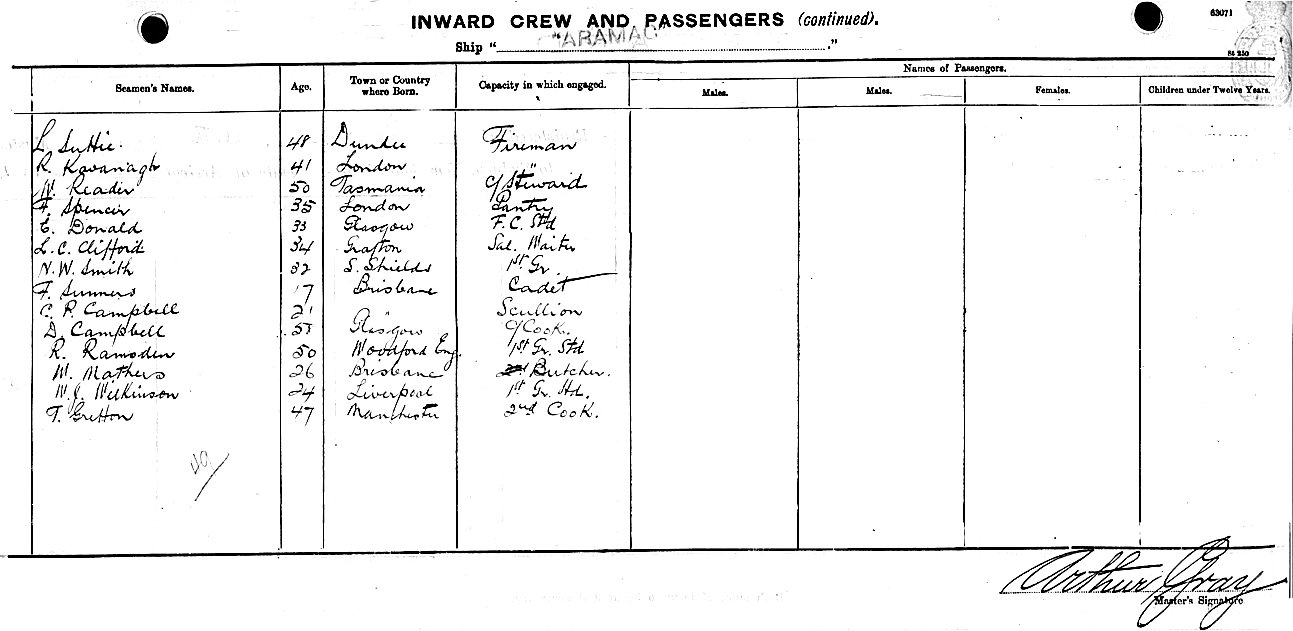 INWARD CREW AND PASSENGERS (continued).
63071
Ship "ARAMAC."
St 250
Seamen's Names. Age. Town or Country where Born. Capacity in which engaged. Names of Passengers.
Males. Males. Females. Children under Twelve Years.
L. Suttie. 48 Dundee Fireman
R. Kavanagh 41 London "
W. Reader 50 Tasmania c/Steward
F. Spencer 35 London Pantry
E. Donald 33 Glasgow F.C. Std
L.C. Clifford 34 Grafton Sal. Waiter
N.W. Smith 32 S. Shields 1st Gr.
F. Sumners 17 Brisbane Cadet
C. R. Campbell 21 " Scullion
D. Campbell Glasgow c/Cook.
R. Ramsden 50 Woodford Eng. 1st Gr. Std
W. Mathers 26 Brisbane Butcher.
W.J. Wilkinson 24 Liverpool 1st Gr. Hd.
T. Gretton 47 Manchester 2nd Cook.
Arthur Gray
Master's Signature